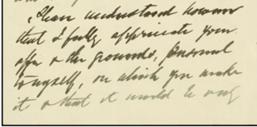 understand however
that I fully appreciate your
offer & the grounds, personal
to myself, on which you make
it & that it would be my